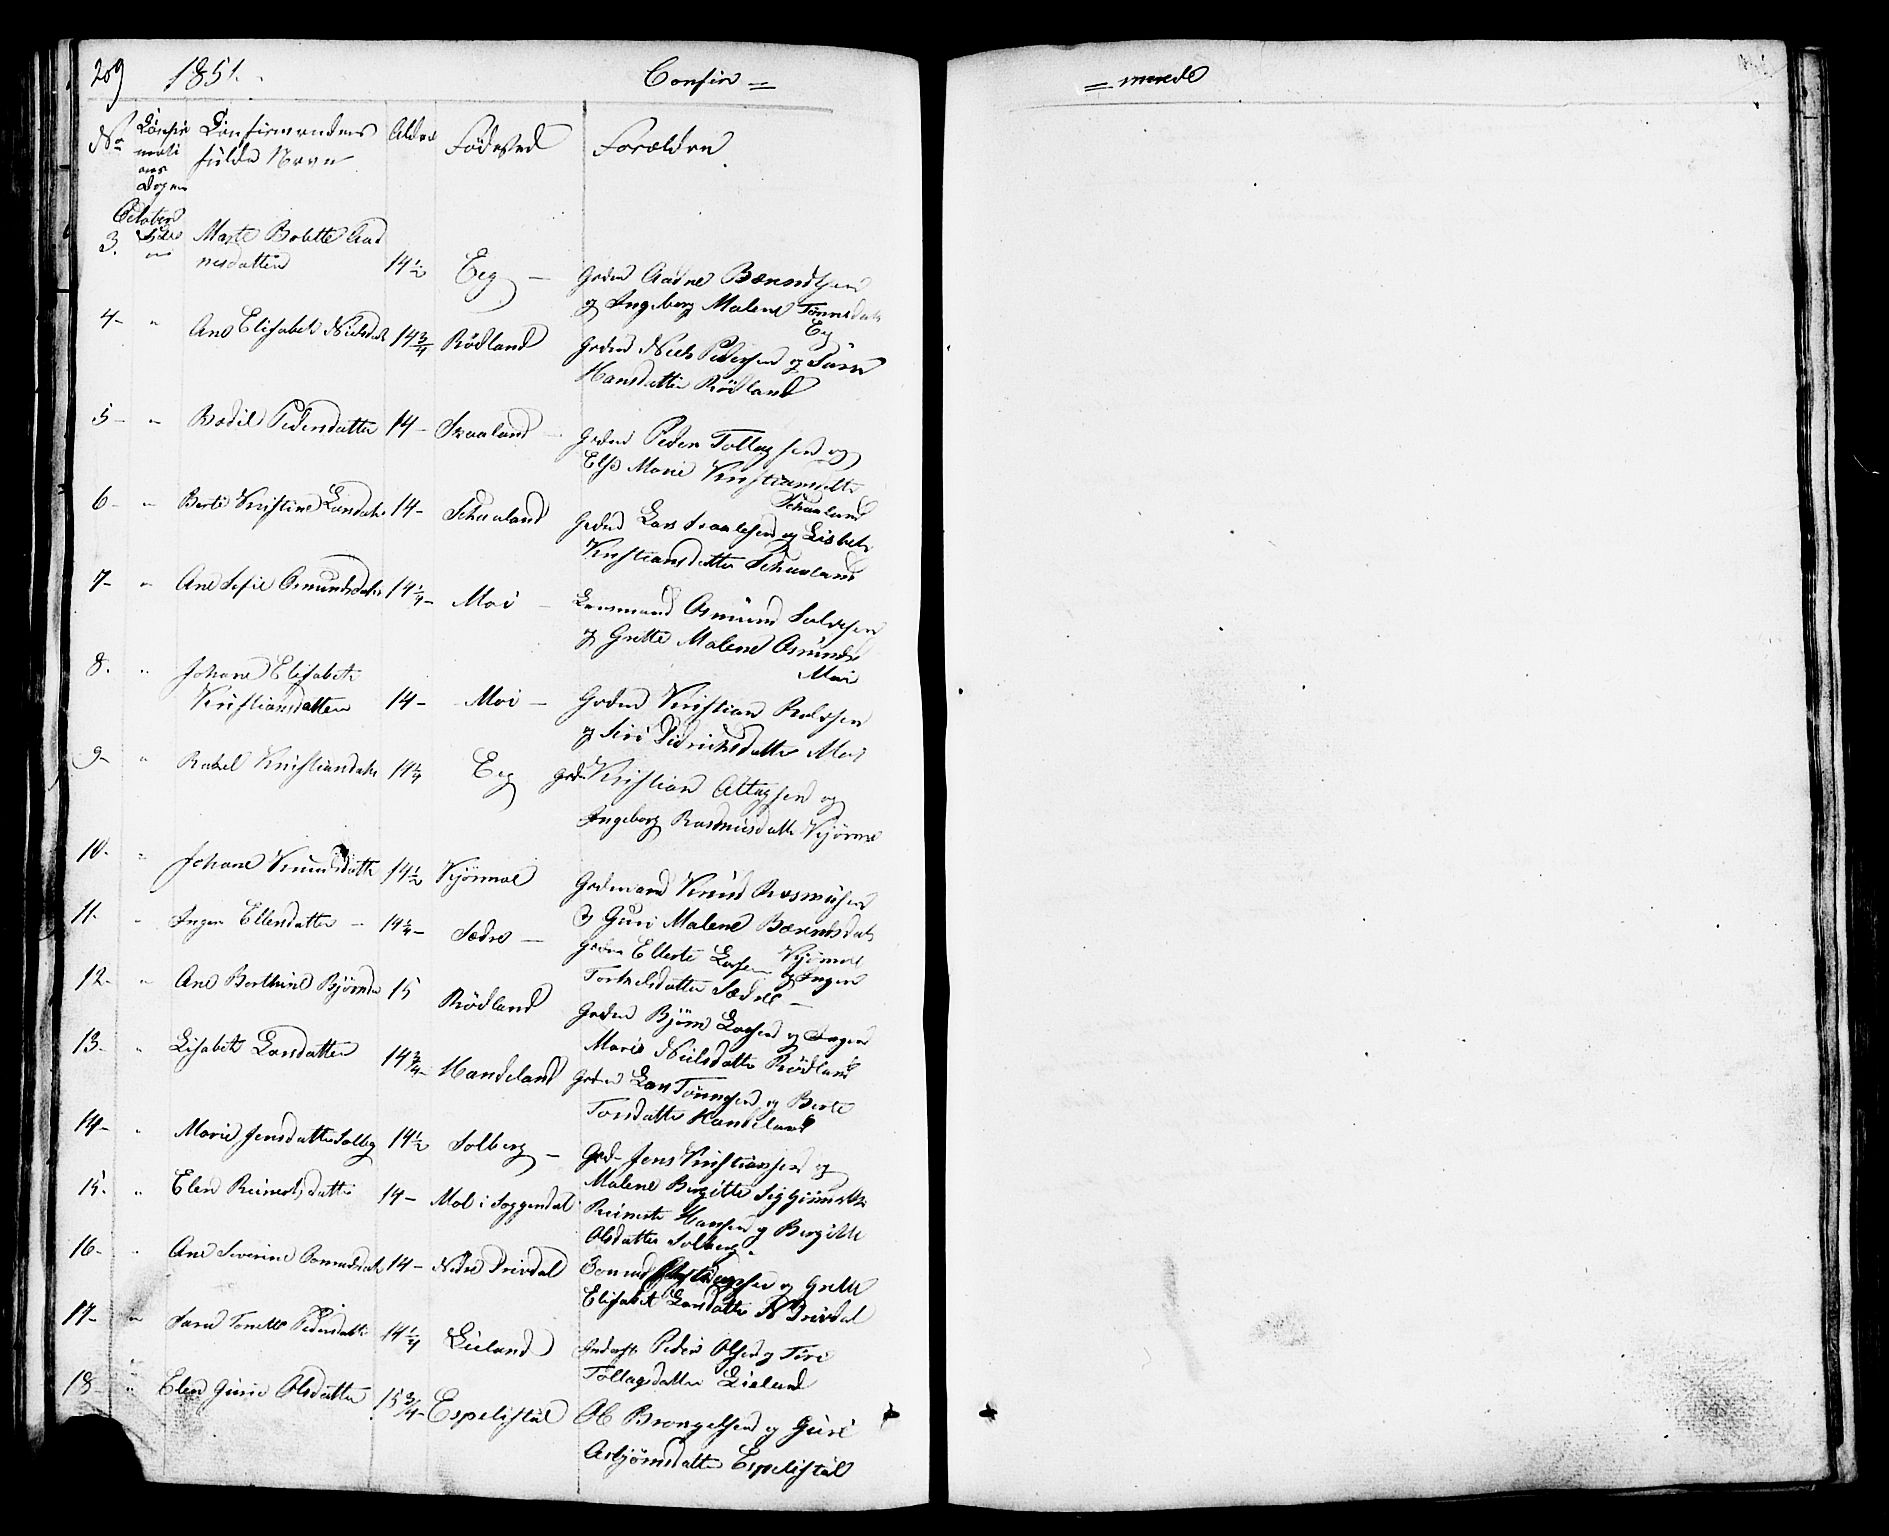 209 1851. Confir =
= merede
No Confir mati ons Dagen
Confirmandens fulde Navn
Alder Fødested Forældre
October
3. Marte Bolette Aad
nesdatter 14 1/2 Eeg — Grdm Aadne Berendtsen
og Ingeborg Malene Tønnesdatr
Eeg
4- " Ane Elisabet Nielsdatr 14 3/4 Rødland Grdm Niels Pedersen og
Hansdatter Rødland
5- " Bodil Pedersdatter 14- Skaaland — Grdm Peder Tollagsen og
Else Marie Kristiansdtr
Schaaland
6- " Berte Kristine Larsdatr 14- Schaaland Grdm Lars og Lisbet
Kristiansdatter Schaaland
7- " Ane Sofie Osmundsdatr 14 1/4- Moi — Lensmand Osmund Salvesen
og Grette Malene Osmunds
Moi
8. " Johane Elisabeth
Kristiansdatter 14- Moi — Grdm Kristian
og Siri Didriksdatter Moi
9- " Rakel Kristiansdatr 14 1/4 Eeg Grdm Kristian Attagsen og
Ingeborg Rasmusdattr Kjørmoe
10. " Johane Knudsdattr 14 1/2 Kjørmoe Grdmand Knud Rasmusen
og Guri Malene Berentsdatr
Kjørmoe
11. " Inger Ellertsdatter — 14 1/4- Sædre — Grdm Ellert Larsen og Inger
Torkelsdatter Sædre —
12- " Ane Berthine Bjørnsdr 15 Rødland Grdm Bjørn Larsen og Inger
Marie Nielsdatter Rødland
13- " Lisabet Larsdatter 14 3/4- Handeland Grdm Lars Tønnesen og Berte
Torsdatter Handeland
14- " Marie Jensdatter Solberg 14 1/2 Solberg — Grd- Jens Kristiansen og
Malene Birgitte
15. " Elen Reinertsdatter 14- Mol i Soggendal Reinert Hansen og Bergitte
Olsdatter Solberg.
16- " Ane Severine Osmundsdatr 14- Nedre Drivdal Osmund og Grette
Elisabet Larsdatter N Drivdal
17- " Sara Tonette Pedersdatter 14 1/4 Lieland Inderst Peder Olsen og Siri
Tollagsdatter Lieland
18- " Elen Gurie Olsdatter 15 3/4- Espelistøl Ole Brongelsen og Guri
Asbjørnsdatter Espelistøl